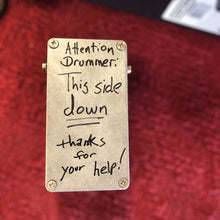 Attention
Drummer:
This side
down
thanks
for
your help!